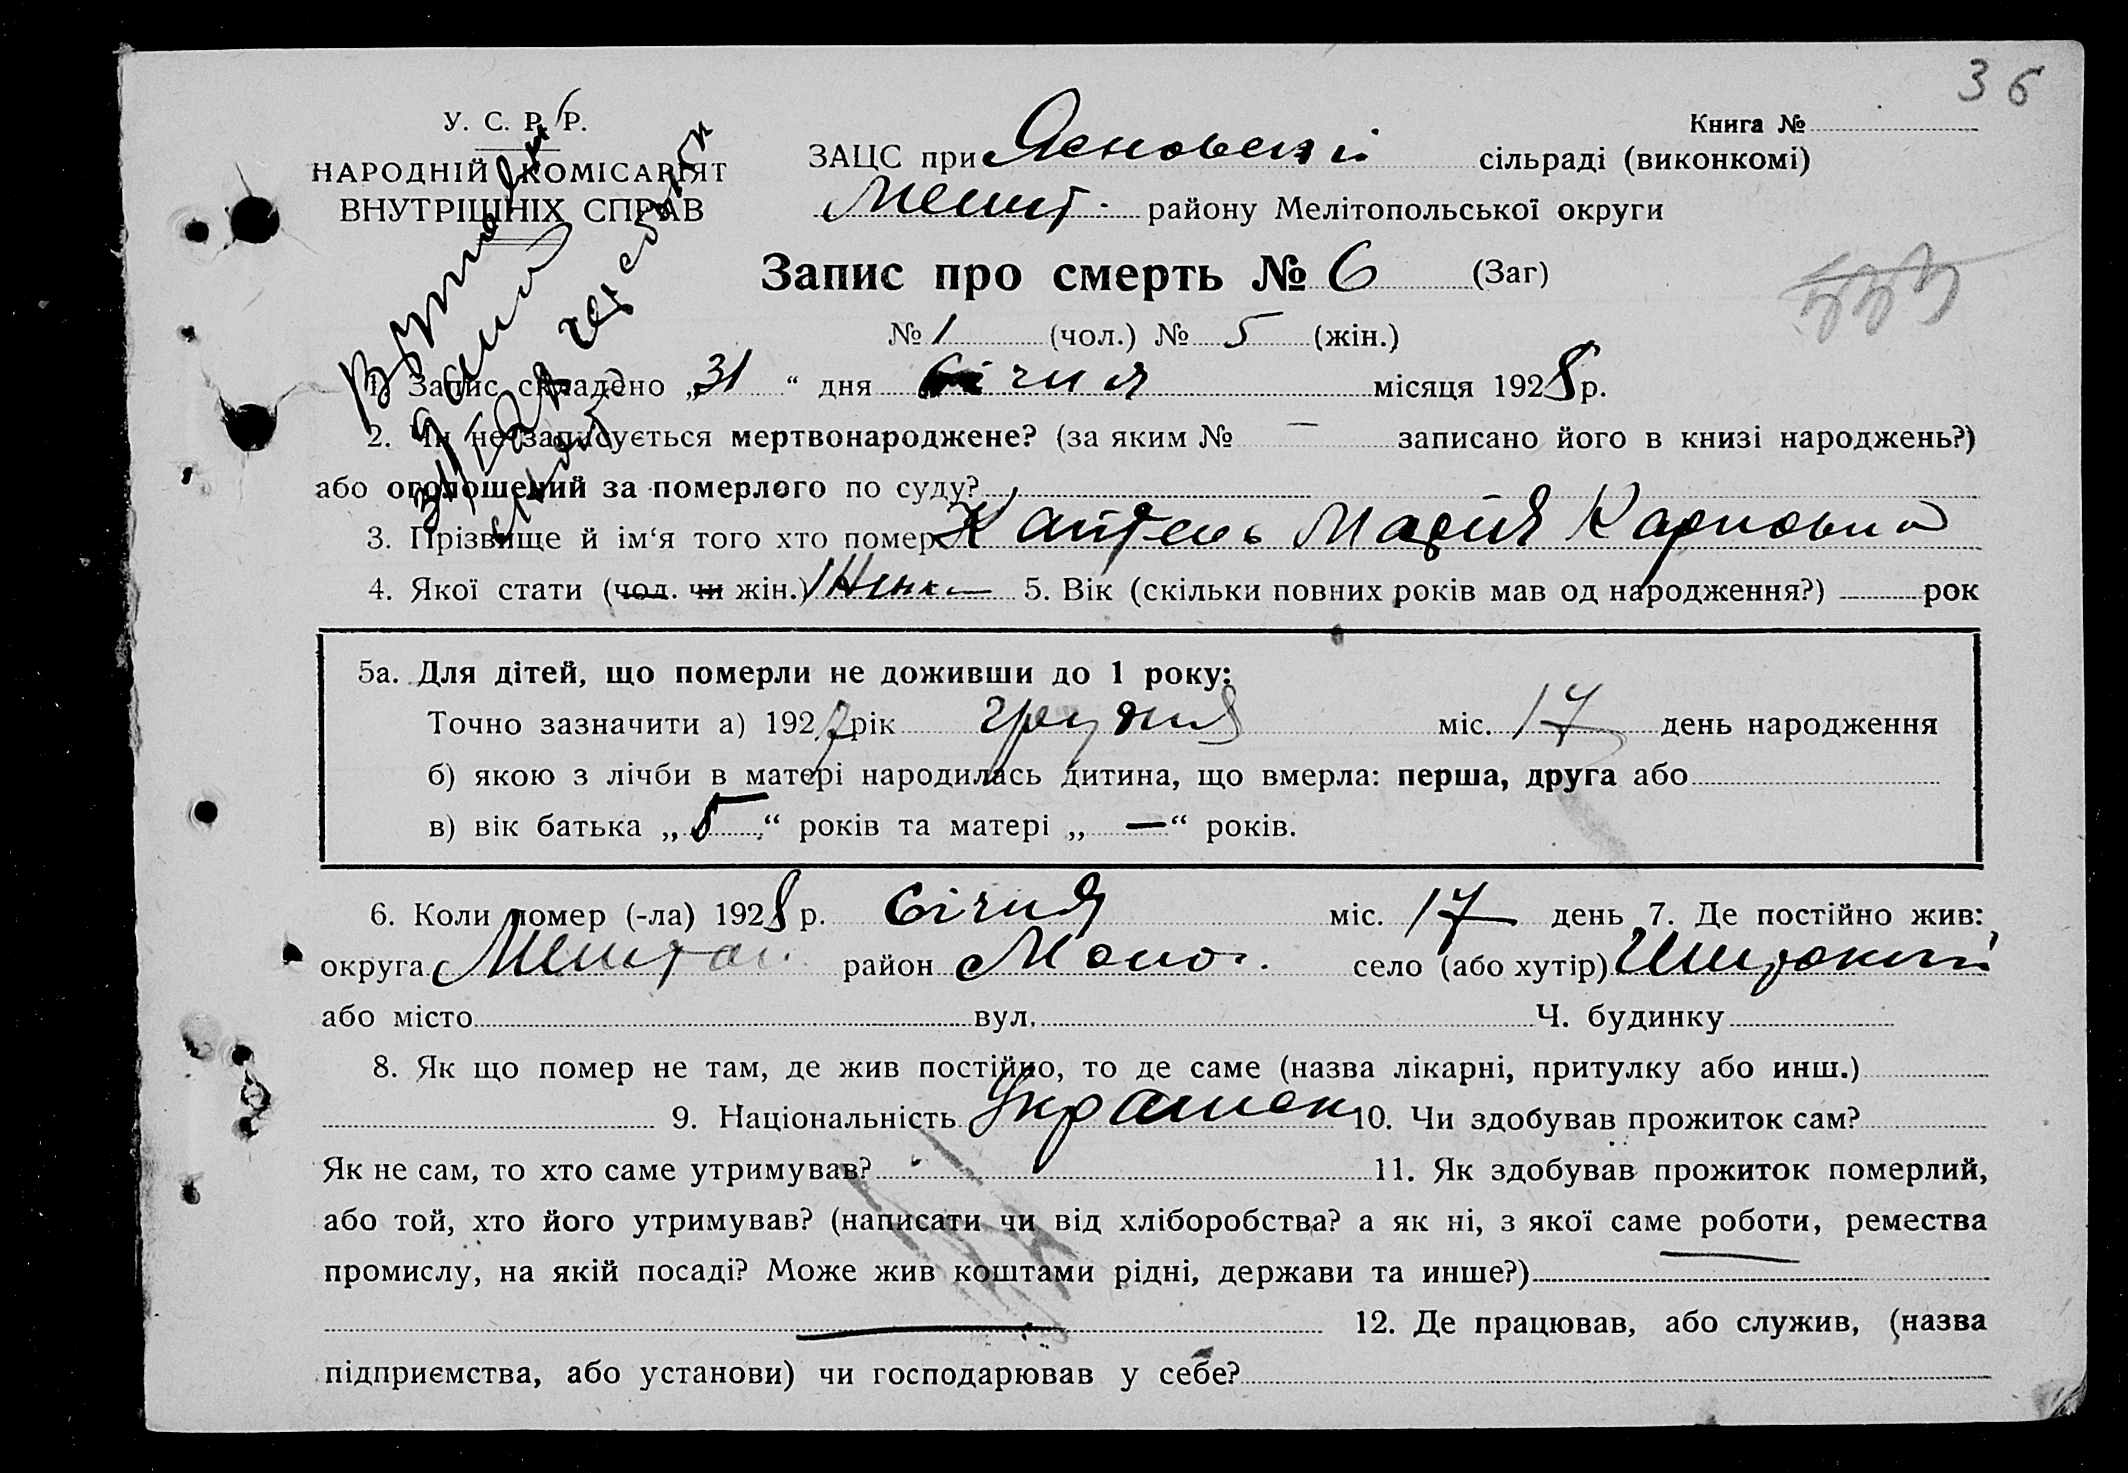 36
У. С. Р. Р.
НАРОДНІЙ КОМІСАРІЯТ
ВНУТРІШНІХ СПРАВ
Книга №
ЗАЦС при Ясновській сільраді (виконкомі)
Меліт. району Мелітопольської округи
Запис про смерть № 6 (Заг)
№ 1 (чол.) № 5 (жін.)
1. Запис складено „31“ дня січня місяця 1928 р.
2. Чи не записується мертвонароджене? (за яким № — записано його в книзі народжень?)
або оголошений за померлого по суду?
3. Прізвище й ім‘я того хто помер Мария Карповна
4. Якої стати (чол. чи жін.) Женск— 5. Вік (скільки повних років мав од народження?) рок
5а. Для дітей, що померли не доживши до 1 року:
Точно зазначити а) 1927 рік грудня міс. 17 день народження
б) якою з лічби в матері народилась дитина, що вмерла: перша, друга або
в) вік батька „5“ років та матері „—“ років.
6. Коли помер (-ла) 1928 р. січня міс. 17 день 7. Де постійно жив:
округа район село (або хутір) Широкий
або місто вул. Ч. будинку
8. Як що помер не там, де жив постійно, то де саме (назва лікарні, притулку або инш.)
9. Національність Украинск 10. Чи здобував прожиток сам?
Як не сам, то хто саме утримував? 11. Як здобував прожиток померлий,
або той, хто його утримував? (написати чи від хліборобства? а як ні, з якої саме роботи, ремества
промислу, на якій посаді? Може жив коштами рідні, держави та инше?)
12. Де працював, або служив, (назва
підприємства, або установи) чи господарював у себе?